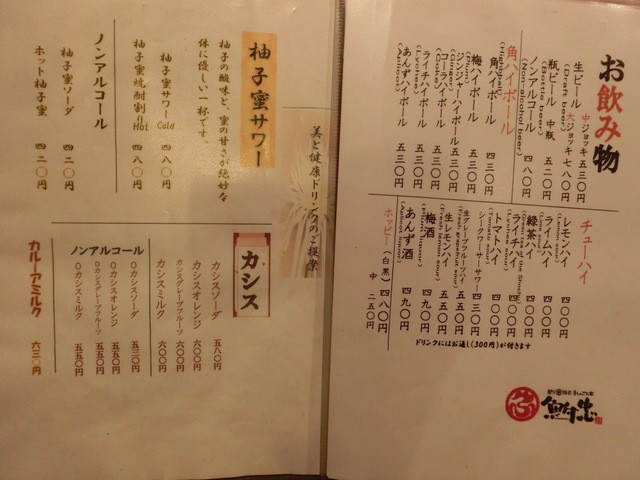 お飲み物
生ビール 中ジョッキ 五三〇円
(Draft beer) 大ジョッキ 七八〇円
瓶ビール 中瓶 五二〇円
(Bottle beer)
ノンアルコール 四八〇円
(Non alcohol beer)
角ハイボール
(Highball)
角ハイボール 四三〇円
梅ハイボール 五三〇円
ジンジャーハイボール 五三〇円
(Ginger)
コーラハイボール 五三〇円
(Coke)
ライチハイボール 五三〇円
(Lychee)
あんずハイボール 五三〇円
チューハイ
レモンハイ 四〇〇円
ライムハイ 四〇〇円
緑茶ハイ 四〇〇円
ライチハイ 四〇〇円
トマトハイ 四〇〇円
シークワーサーサワー 四三〇円
生グレープフルーツハイ 五五〇円
生レモンハイ 五五〇円
梅酒 四九〇円
あんず酒 四九〇円
ホッピー(白黒) 四八〇円
中 二五〇円
ドリンクにはお通し(300円)が付きます
美と健康ドリンクのご提案
柚子蜜サワー
柚子の酸味と、蜜の甘さが絶妙な
体に優しい一杯です。
柚子蜜サワー Cold 四八〇円
柚子蜜焼酎割り Hot 四八〇円
ノンアルコール
柚子蜜ソーダ 四二〇円
ホット柚子蜜 四二〇円
カシス
カシスソーダ 五八〇円
カシスオレンジ 六〇〇円
カシスグレープフルーツ 六〇〇円
カシスミルク 六〇〇円
ノンアルコール
〇カシスソーダ 五三〇円
〇カシスオレンジ 五五〇円
〇カシスグレープフルーツ 五五〇円
〇カシスミルク 五五〇円
カルーアミルク 六三〇円